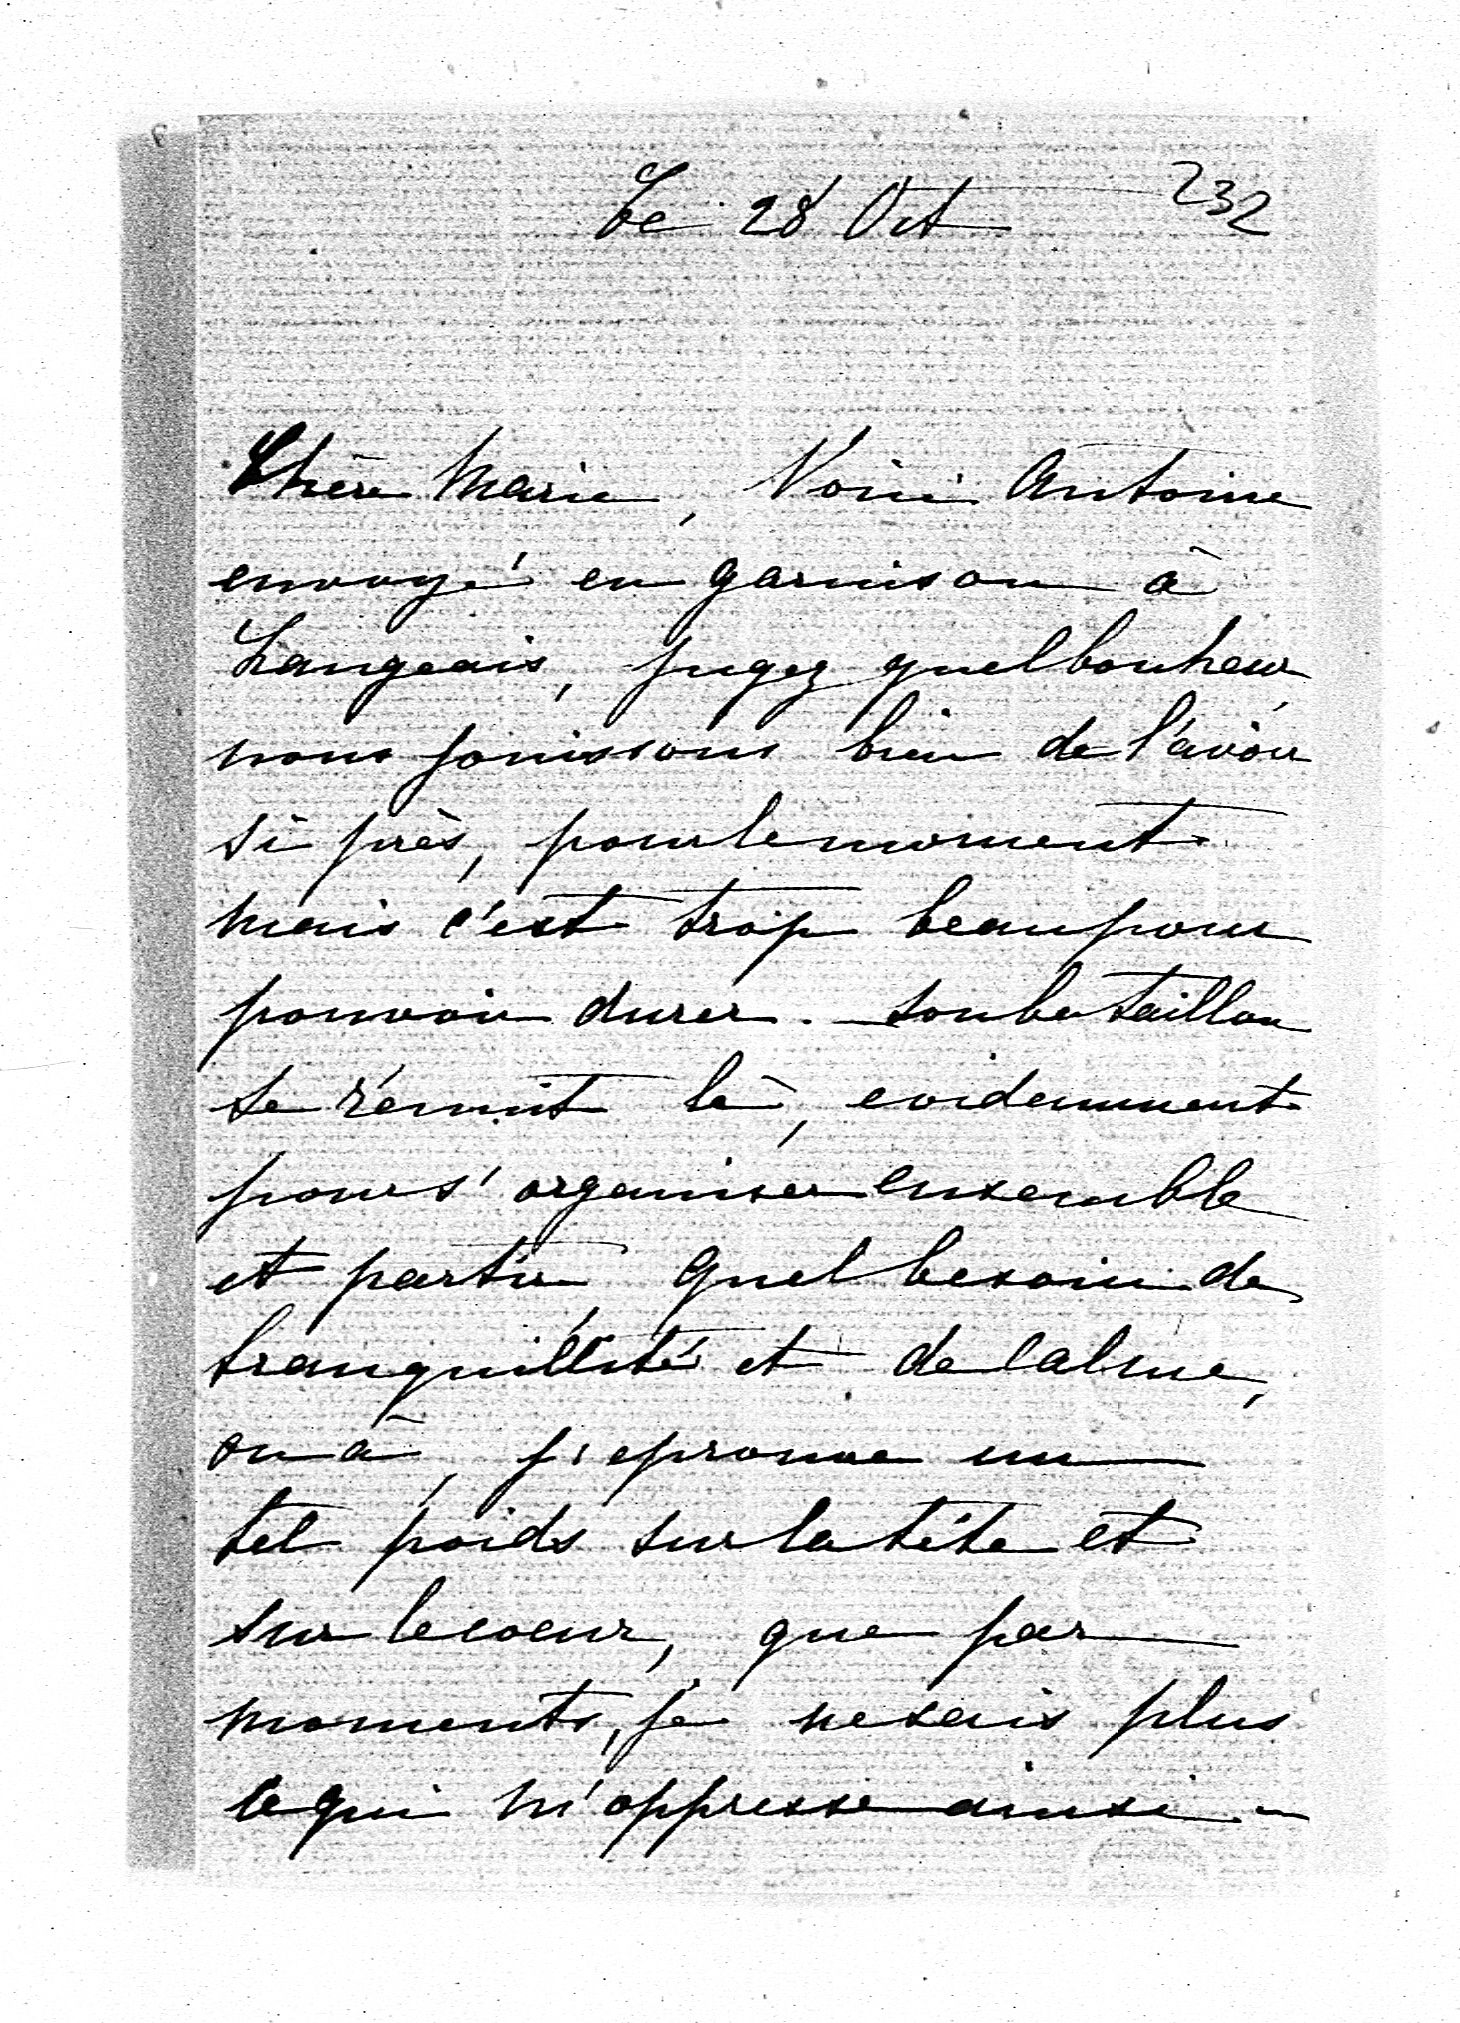 Le 28 Oct 232
Chère Marie, Voici Antoine
envoyé en garnison à
Langeais, jugez quel bonheur,
nous jouissons bien de l'avoir
si près, pour le moment
mais c'est trop beau pour
pouvoir durer. son bataillon
se réunit là, evidemment
pour s'organiser ensemble
et partir, quel besoin de
tranquillité et de calme,
on a, j'eprouve un
tel poids sur la tête et
sur le coeur, que par
moments, je ne sais plus
ce qui m'oppresse ainsi -